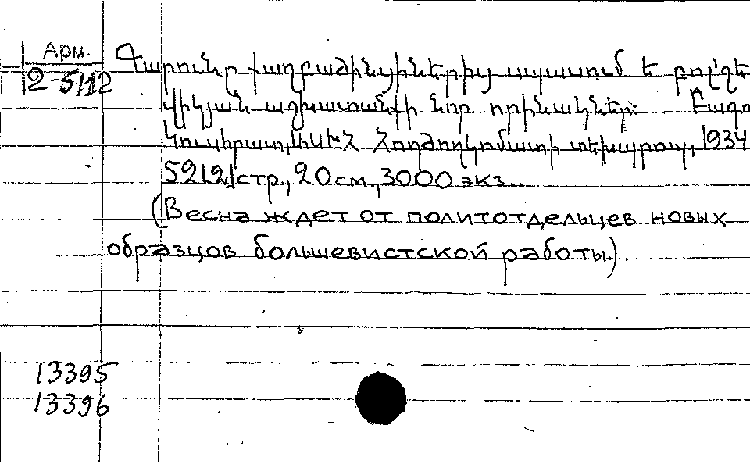 Арм.
2-5112
Գարունը քաղբաժինցիներից սպասում է բոլշե
վիկյան աշխատանքի նոր օրինակներ: Բաքու
Կուսհրատ, 1934
52[2] стр., 20 см, 3000 экз.
(Весна ждет от политотдельцев новых
образцов большевистской работы.)
13395
13396